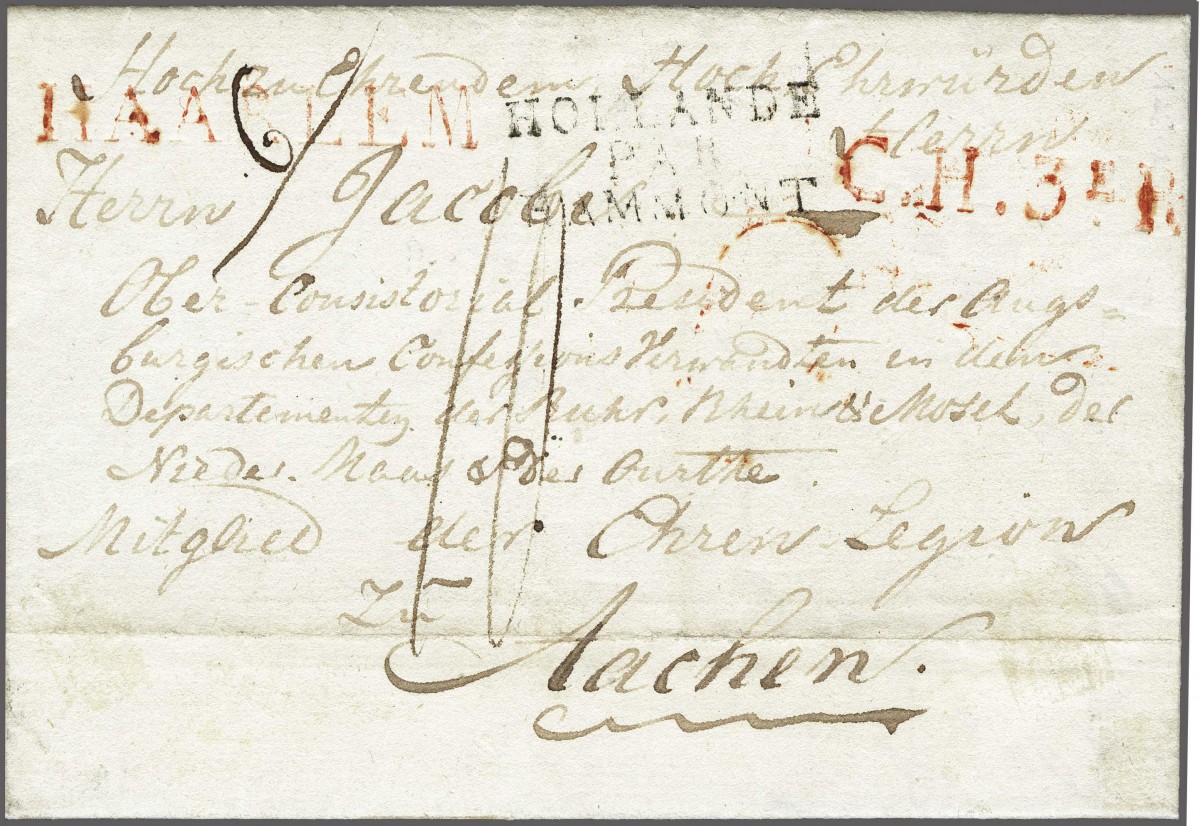 Hochzu Ehrendem, Hoch Ehrwürden
Herrn
HAARLEM
HOLLANDE
PAR
GAMMONT
C.H.3E R.
Herrn Jacobi
Ober-Consistorial President der Augs-
burgischen Confessions Verwandten in dem
Departementen der Ruhr, Rhein & Mosel, der
Nieder-Maas & der Ourthe.
Mitglied der Ehren Legion
Zu
Aachen.